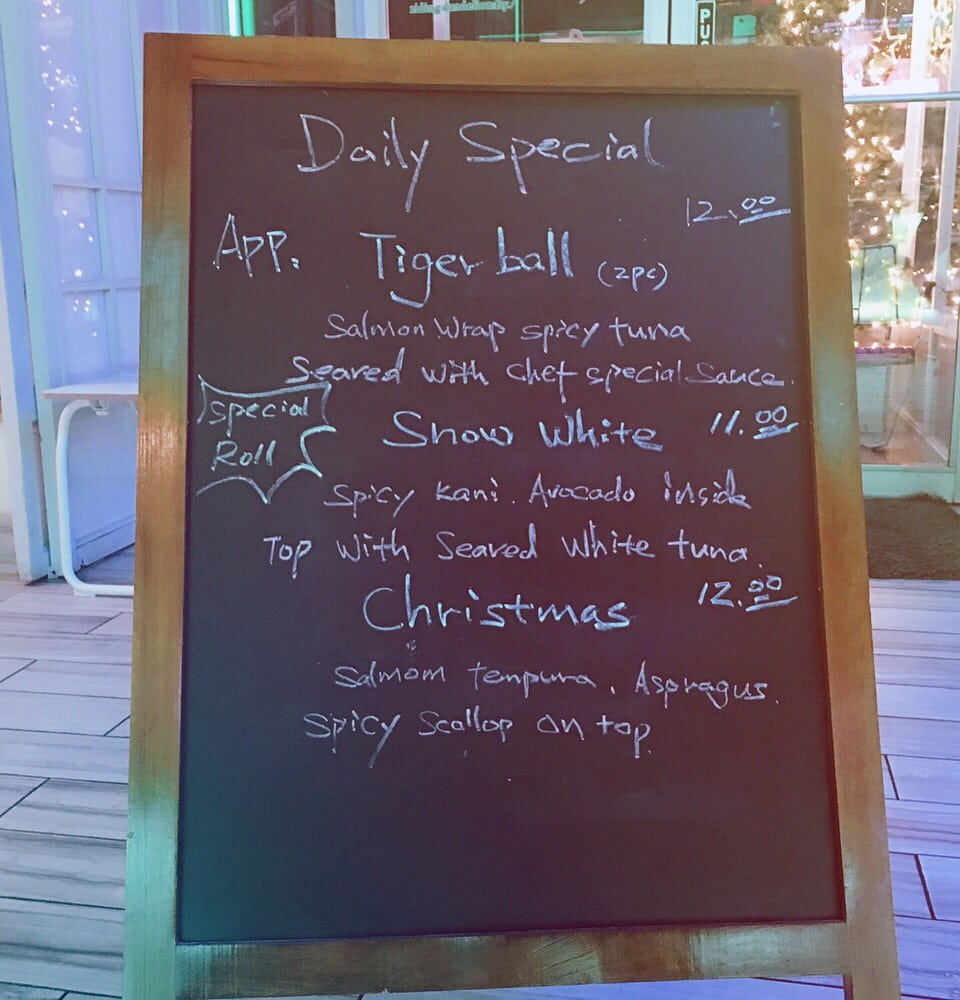 riding dandelion fly.
Daily Special
12.00
App. Tiger ball (2pc)
Salmon wrap spicy tuna
Seared with chef special sauce.
Special
Roll
Snow White 11.00
Spicy kani. Avocado inside
Top with Seared White tuna.
Christmas 12.00
Salmom tenpura. Aspragus.
Spicy Scallop on top.